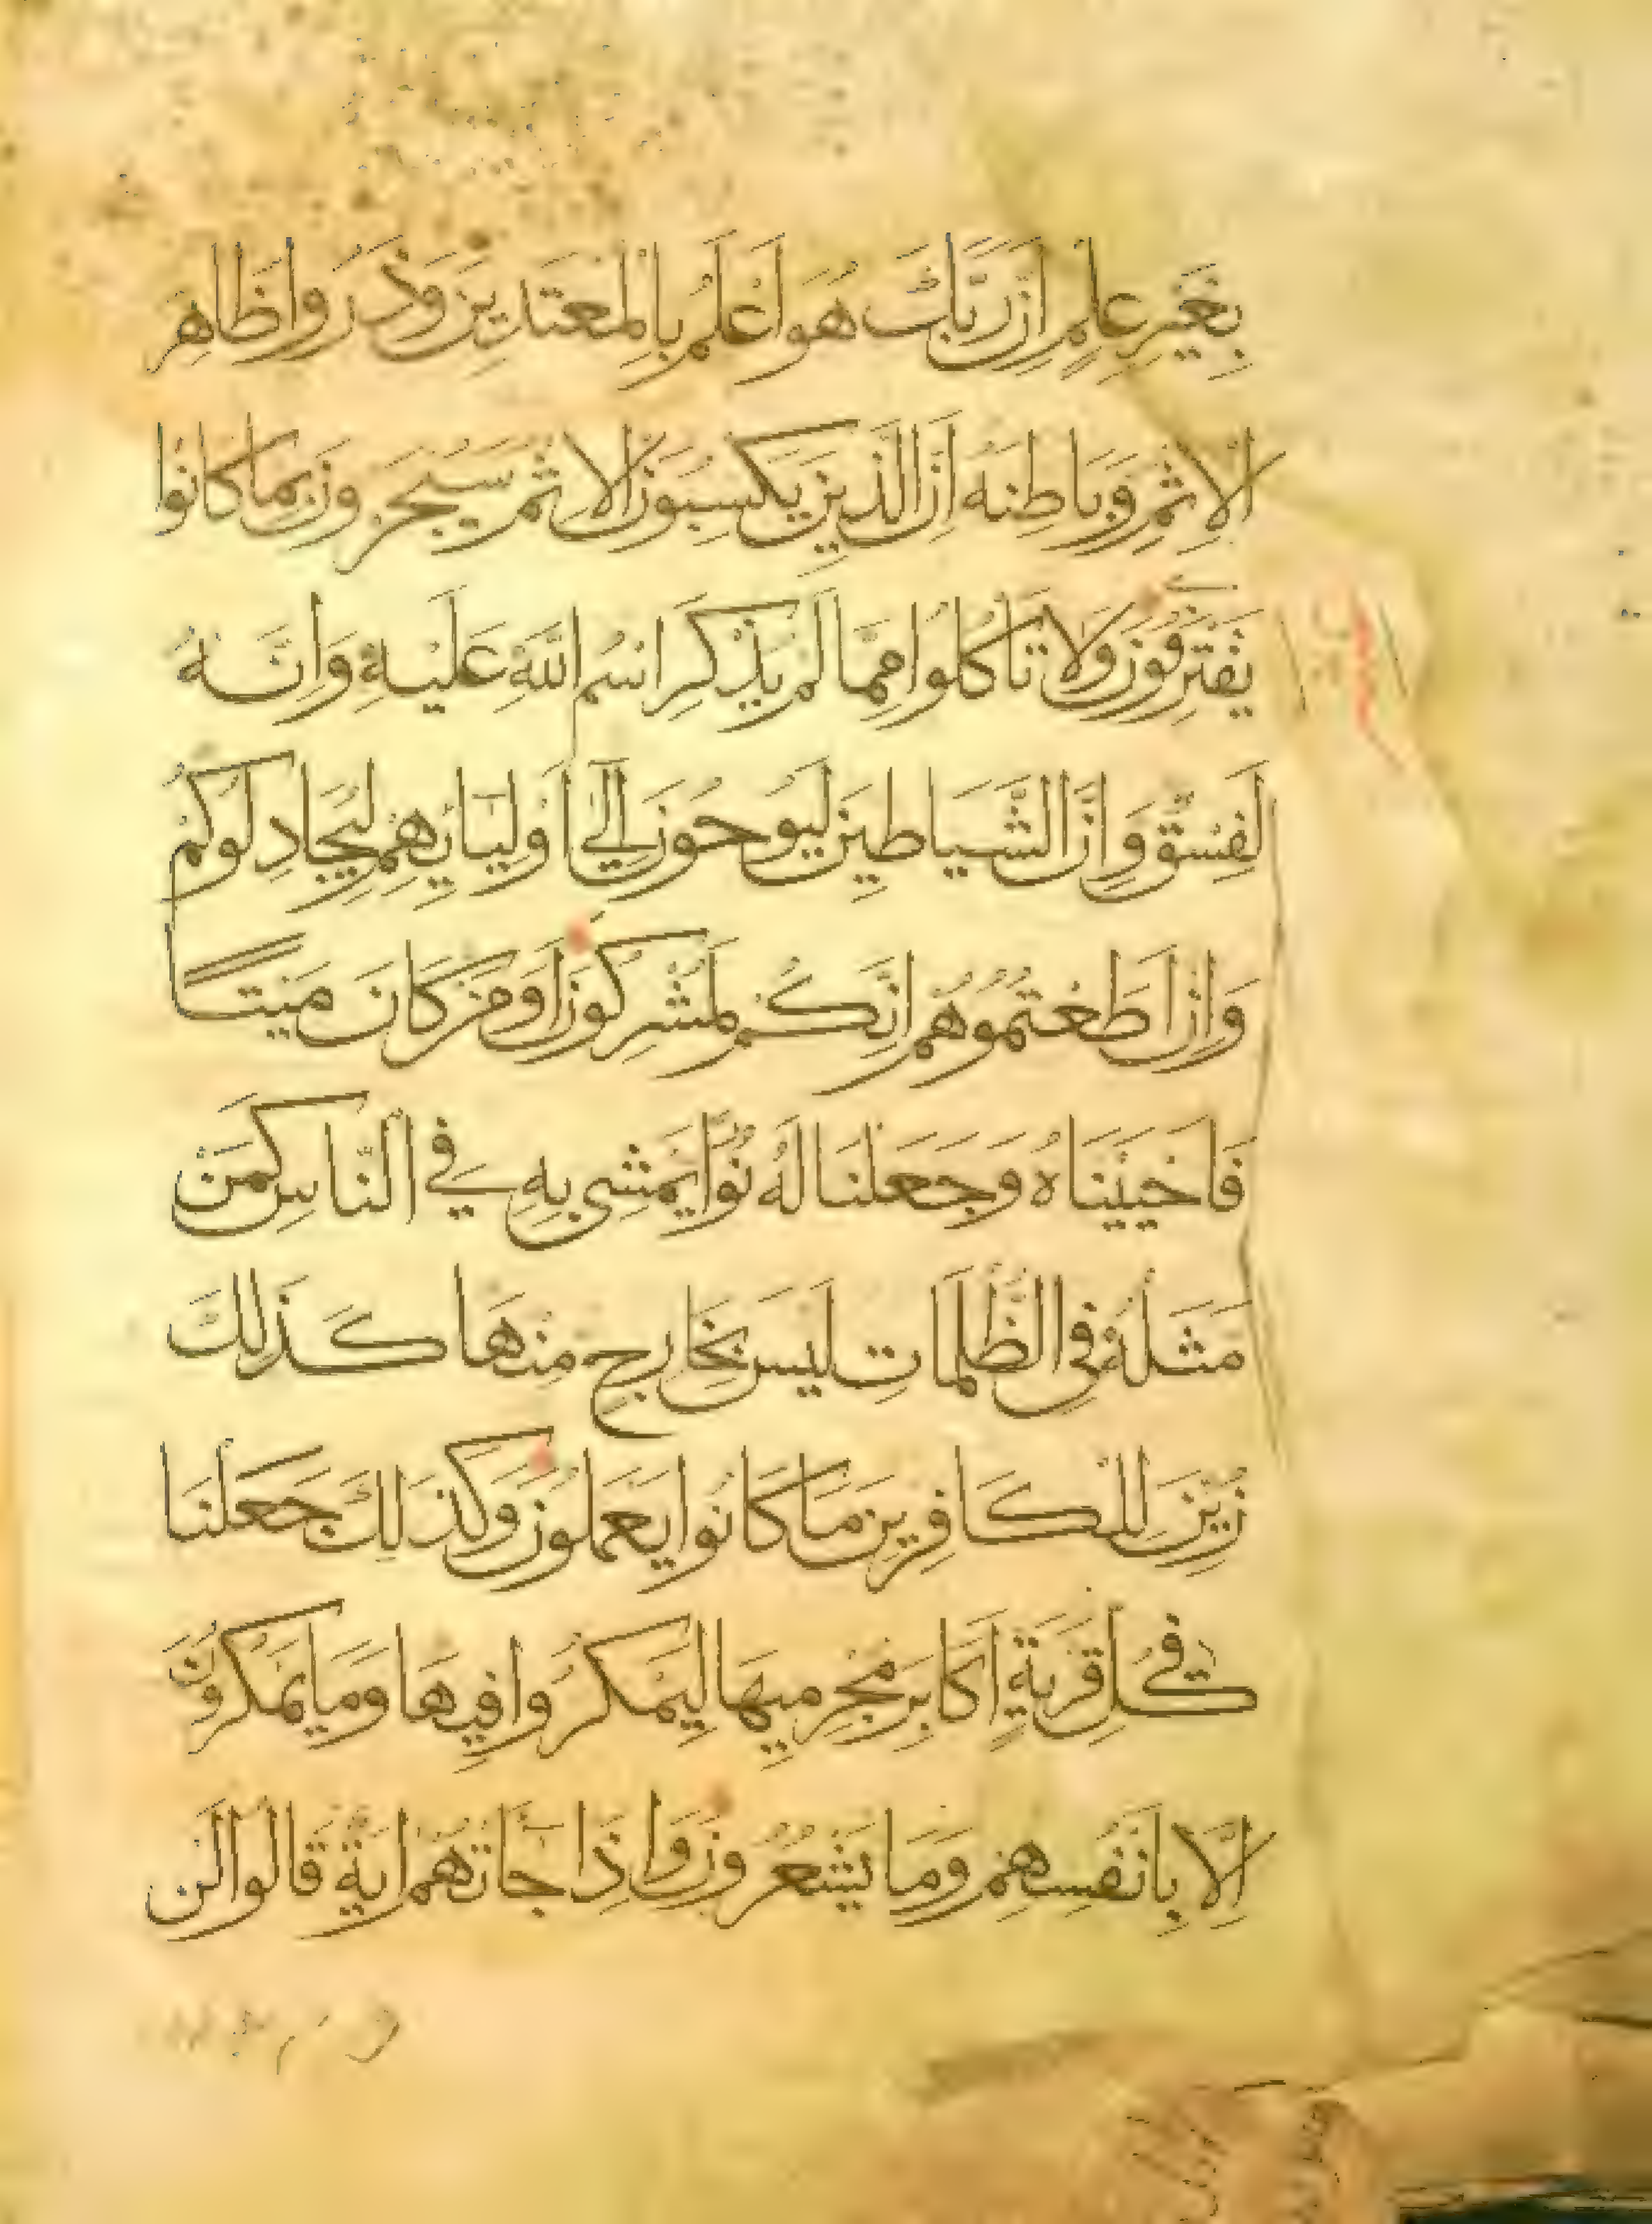 بِغَيْرِ عِلْمٍ اِنَّ رَبَّكَ هُوَ اَعْلَمُ بِالْمُعْتَدِينَ وَذَرُوا ظَاهِرَ
الْاِثْمِ وَبَاطِنَهُ اِنَّ الَّذِينَ يَكْسِبُونَ الْاِثْمَ سَيُجْزَوْنَ بِمَا كَانُوا
يَقْتَرِفُونَ وَلَا تَاْكُلُوا مِمَّا لَمْ يُذْكَرِ اسْمُ اللَّهِ عَلَيْهِ وَاِنَّهُ
لَفِسْقٌ وَاِنَّ الشَّيَاطِينَ لَيُوحُونَ اِلَى اَوْلِيَائِهِمْ لِيُجَادِلُوكُمْ
وَاِنْ اَطَعْتُمُوهُمْ اِنَّكُمْ لَمُشْرِكُونَ اَوَمَنْ كَانَ مَيْتًا
فَاَحْيَيْنَاهُ وَجَعَلْنَا لَهُ نُورًا يَمْشِي بِهِ فِي النَّاسِ كَمَنْ
مَثَلُهُ فِي الظُّلُمَاتِ لَيْسَ بِخَارِجٍ مِنْهَا كَذَلِكَ
زُيِّنَ لِلْكَافِرِينَ مَا كَانُوا يَعْمَلُونَ وَكَذَلِكَ جَعَلْنَا
فِي كُلِّ قَرْيَةٍ اَكَابِرَ مُجْرِمِيهَا لِيَمْكُرُوا فِيهَا وَمَا يَمْكُرُونَ
اِلَّا بِاَنْفُسِهِمْ وَمَا يَشْعُرُونَ وَاِذَا جَاتْهُمْ ايَةٌ قَالُوا لَنْ